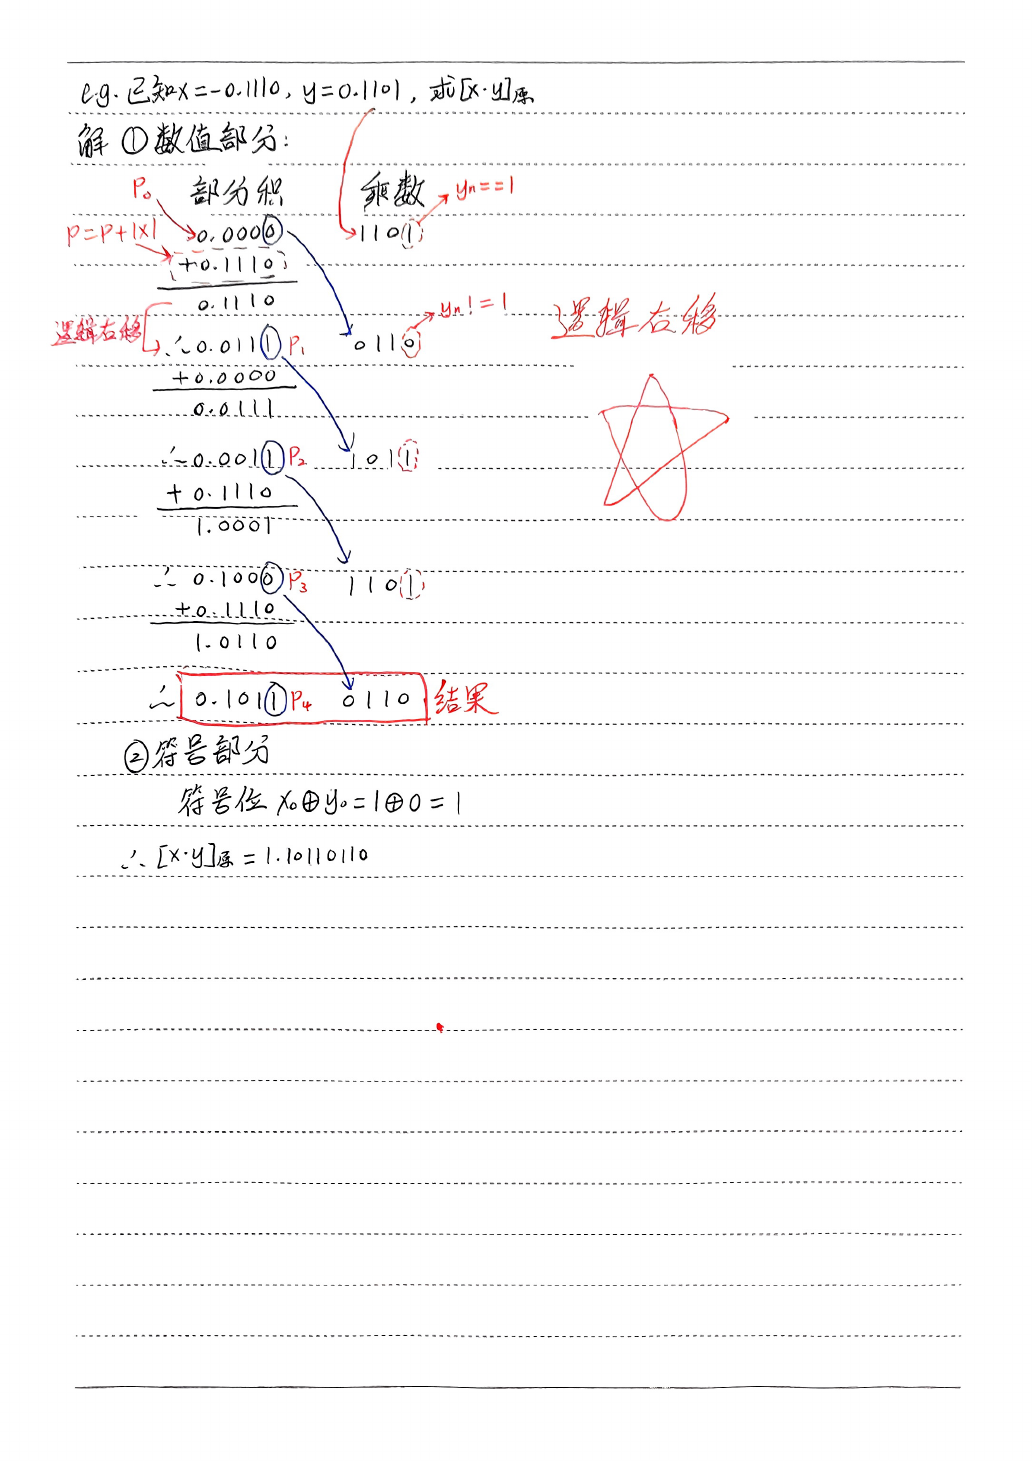 e.g. 已知x=-0.1110, y=0.1101, 求[x·y]原
解 ①数值部分:
P₀ 部分积 乘数 yn==1
P=P+|x| 0.0000 1101
+0.1110
0.1110 yn!=1
逻辑右移 逻辑右移
∴0.0111 P₁ 0110
+0.0000
0.0111
∴0.0011 P₂ 1011
+0.1110
1.0001
∴0.1000 P₃ 1101
+0.1110
1.0110
∴0.1011 P₄ 0110 结果
②符号部分
符号位 x₀⊕y₀=1⊕0=1
∴[x·y]原=1.10110110